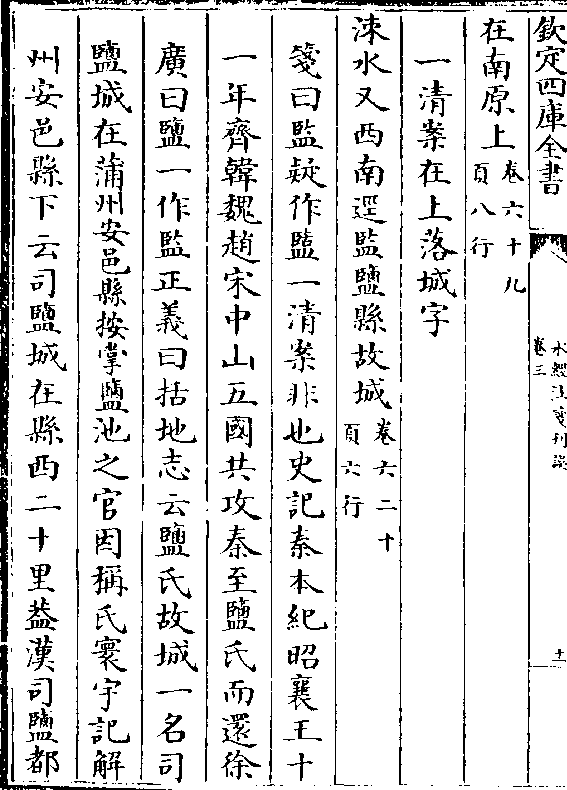 欽定四庫全書
水經注箋刊誤
卷三
十一
在南原上卷六十九頁八行
一清案在上落城字
涑水又西南逕監鹽縣故城卷六二十頁六行
箋曰監疑作鹽一清案非也史記秦本紀昭襄王十
一年齊韓魏趙宋中山五國共攻秦至鹽氏而還徐
廣曰鹽一作監正義曰括地志云鹽氏故城一名司
鹽城在蒲州安邑縣按掌鹽池之官因稱氏寰宇記解
州安邑縣下云司鹽城在縣西二十里葢漢司鹽都